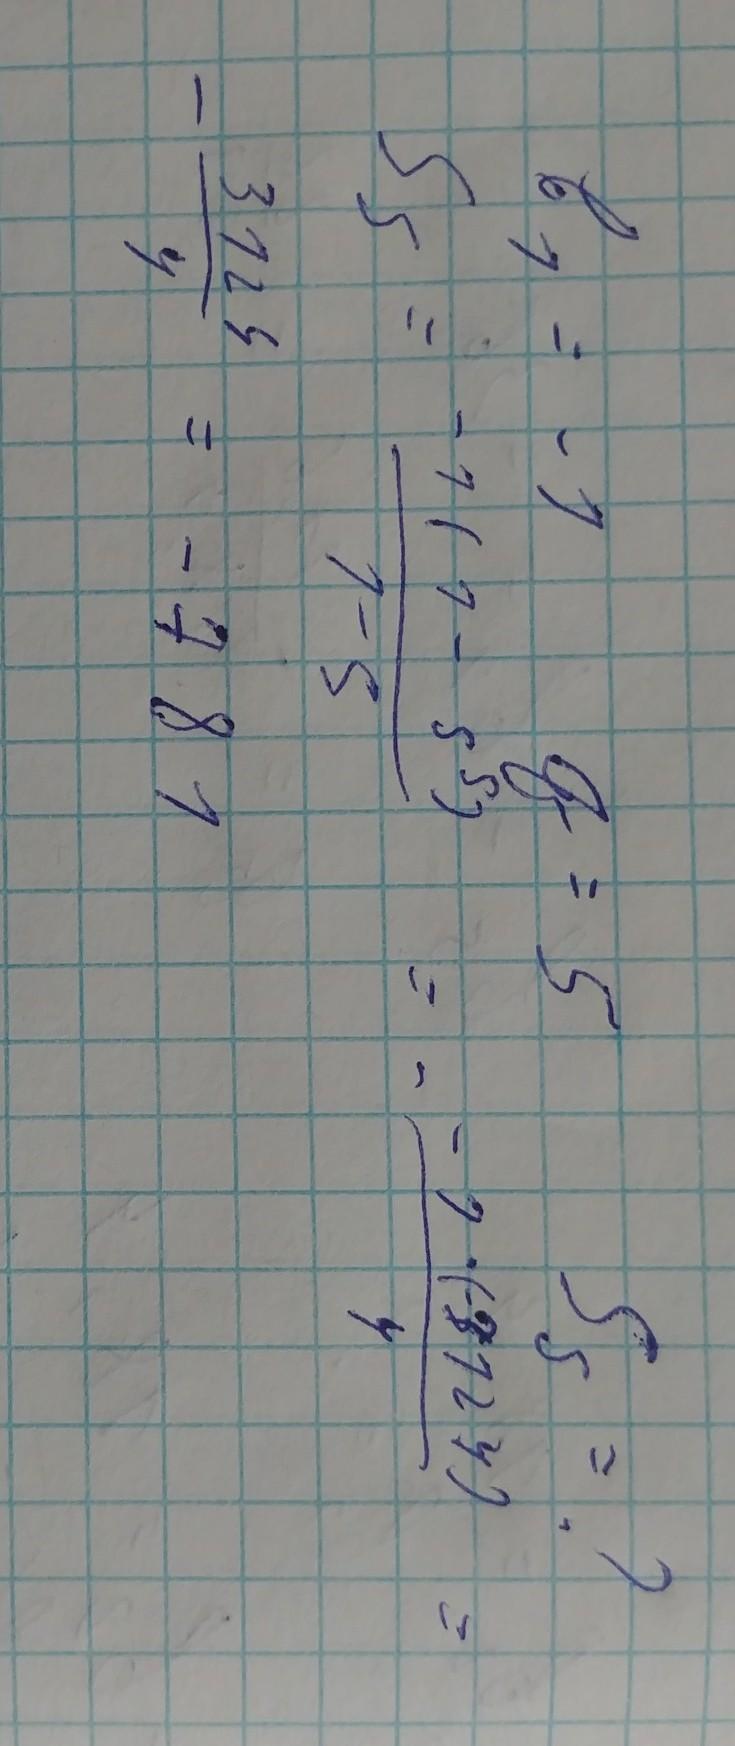 b₁ = -1 q = 5 S₅ = ?
S₅ = -1(1-5⁵)/1-5 = - -1·(-3124)/4 =
- 3124/4 = -781